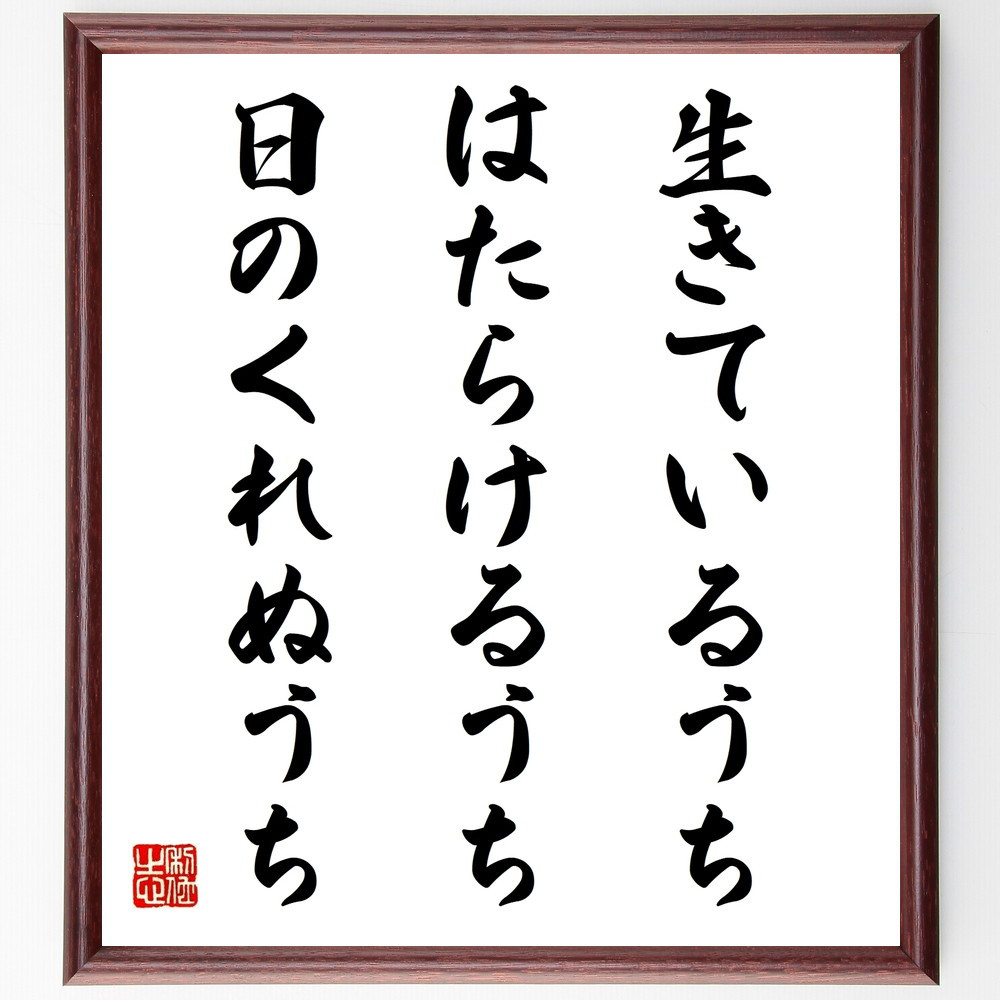 生きているうち
はたらけるうち
日のくれぬうち